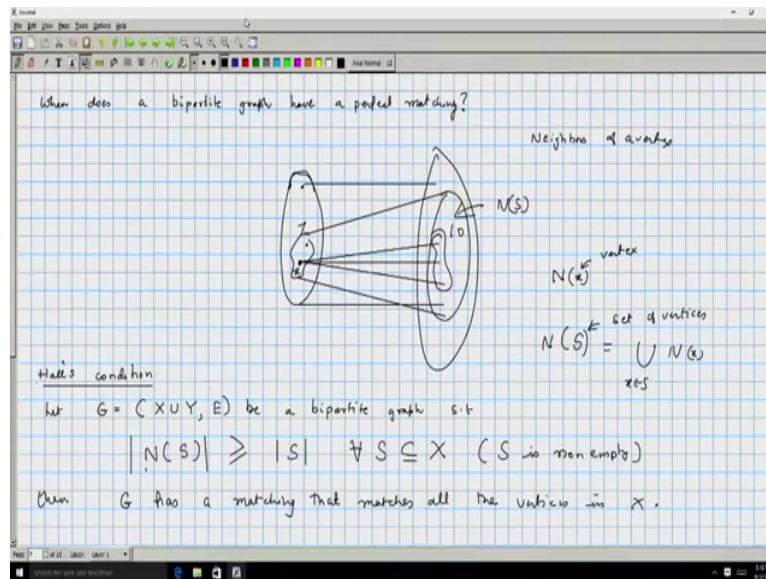 Journal
File Edit View Page Tools Options Help
When does a bipartite graph have a perfect matching?
Neighbors of a vertex
N(S)
7
10
x
N(x) vertex
N(S) set of vertices
= ∪ N(x)
x∈S
Hall's condition
Let G = (X ∪ Y, E) be a bipartite graph s.t
|N(S)| ≥ |S| ∀ S ⊆ X (S is non empty)
then G has a matching that matches all the vertices in X.
Layer 1